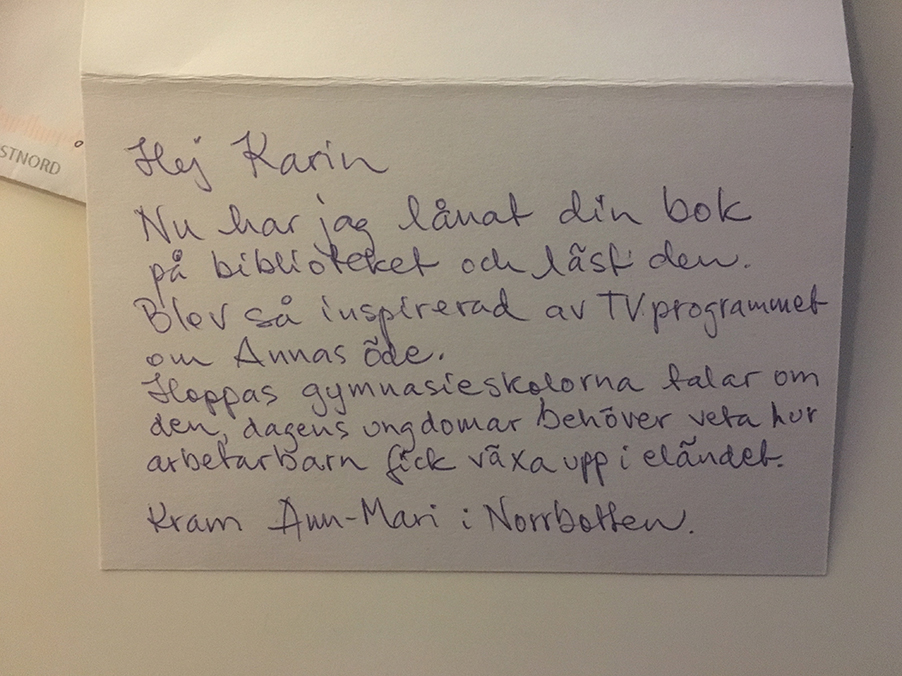 STNORD
Hej Karin
Nu har jag lånat din bok
på biblioteket och läst den.
Blev så inspirerad av TV programmet
om Annas öde.
Hoppas gymnasieskolorna talar om
den, dagens ungdomar behöver veta hur
arbetarbarn fick växa upp i eländet.
Kram Ann-Mari i Norrbotten.